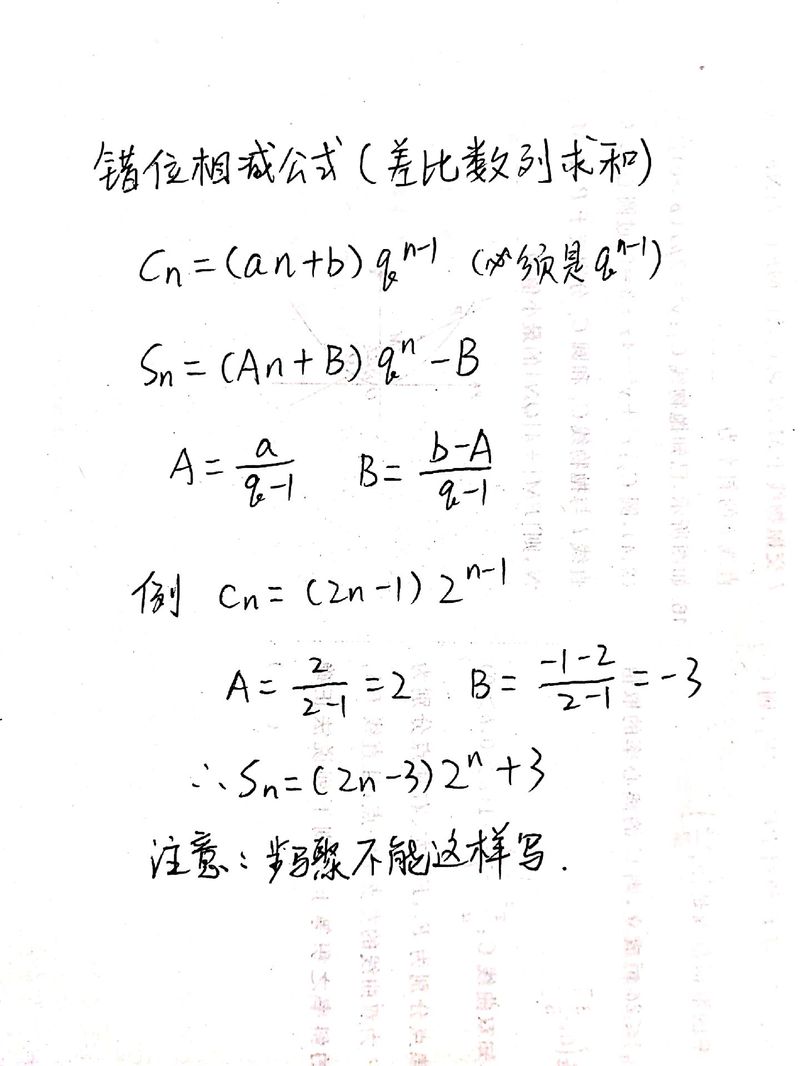 错位相减公式(差比数列求和)
Cn=(an+b)q^{n-1} (必须是q^{n-1})
Sn=(An+B)q^n-B
A=\frac{a}{q-1} B=\frac{b-A}{q-1}
例 Cn=(2n-1)2^{n-1}
A=\frac{2}{2-1}=2 B=\frac{-1-2}{2-1}=-3
∴Sn=(2n-3)2^n+3
注意:步骤不能这样写.